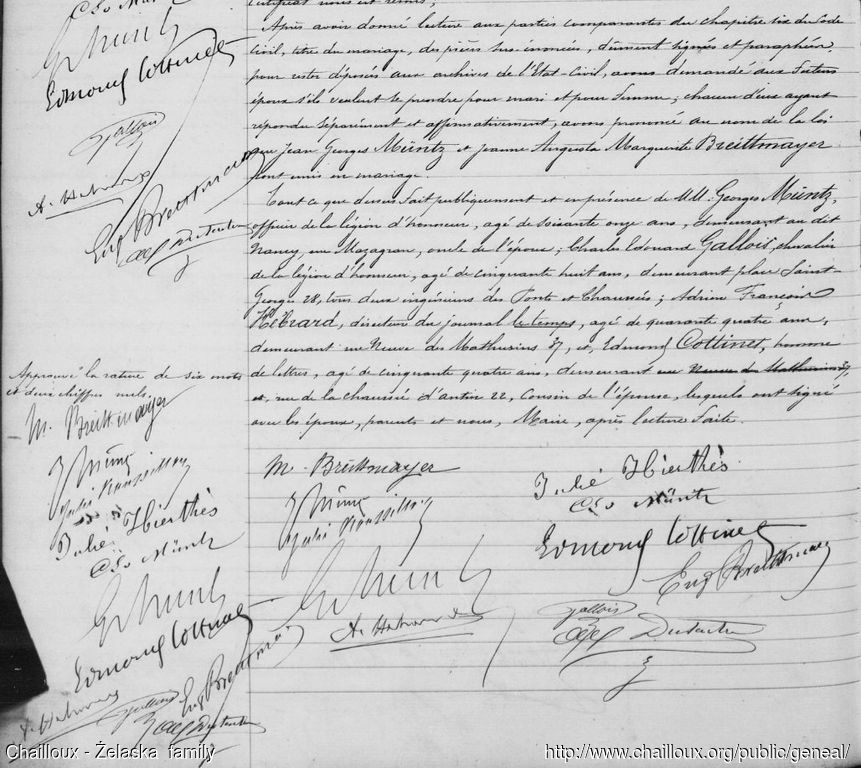 certificat nous est remis,
Après avoir donné lecture aux parties comparantes du chapitre six du Code
civil, titre du mariage, des pièces sus-énoncées, dûment signées et paraphées
pour rester déposées aux archives de l'Etat-Civil, avons demandé aux futurs
époux s'ils veulent se prendre pour mari et pour femme; chacun d'eux ayant
répondu séparément et affirmativement, avons prononcé au nom de la loi
que Jean Georges Müntz et Jeanne Augusta Marguerite Breittmayer
sont unis en mariage.
Tout ce que dessus fait publiquement et en présence de MM. Georges Müntz,
officier de la légion d'honneur, agé de soixante onze ans, demeurant au dit
Nancy, rue Mazagran, oncle de l'époux; Charles Edouard Gallois, chevalier
de la légion d'honneur, agé de cinquante huit ans, demeurant place Saint-
Georges 28, tous deux ingénieurs des Ponts et Chaussées; Adrien François
Hébrard, directeur du journal le temps, agé de quarante quatre ans,
demeurant rue Neuve des Mathurins 37, et, Edmond Cottinet, homme
de lettres, agé de cinquante quatre ans, demeurant rue Neuve des Mathurins 37,
et, rue de la chaussée d'antin 22, Cousin de l'épouse, lesquels ont signé
avec les époux, parents et nous, Maire, après lecture faite.
Cléo Müntz
Edmond Cottinet
Gallois
A. Hébrard
Eug Breittmayer
Approuvé la rature de six mots
et deux chiffres nuls.
M. Breittmayer
J Müntz
Julie Roussillon
Julie Hierthès
Cléo Müntz
Edmond Cottinet
Eug Breittmayer
A. Hébrard
Gallois
M. Breittmayer
J Müntz
Julie Roussillon
Julie Hierthès
Cléo Müntz
Edmond Cottinet
Eug Breittmayer
A. Hébrard
Gallois
Chailloux - Żelaska family
http://www.chailloux.org/public/geneal/